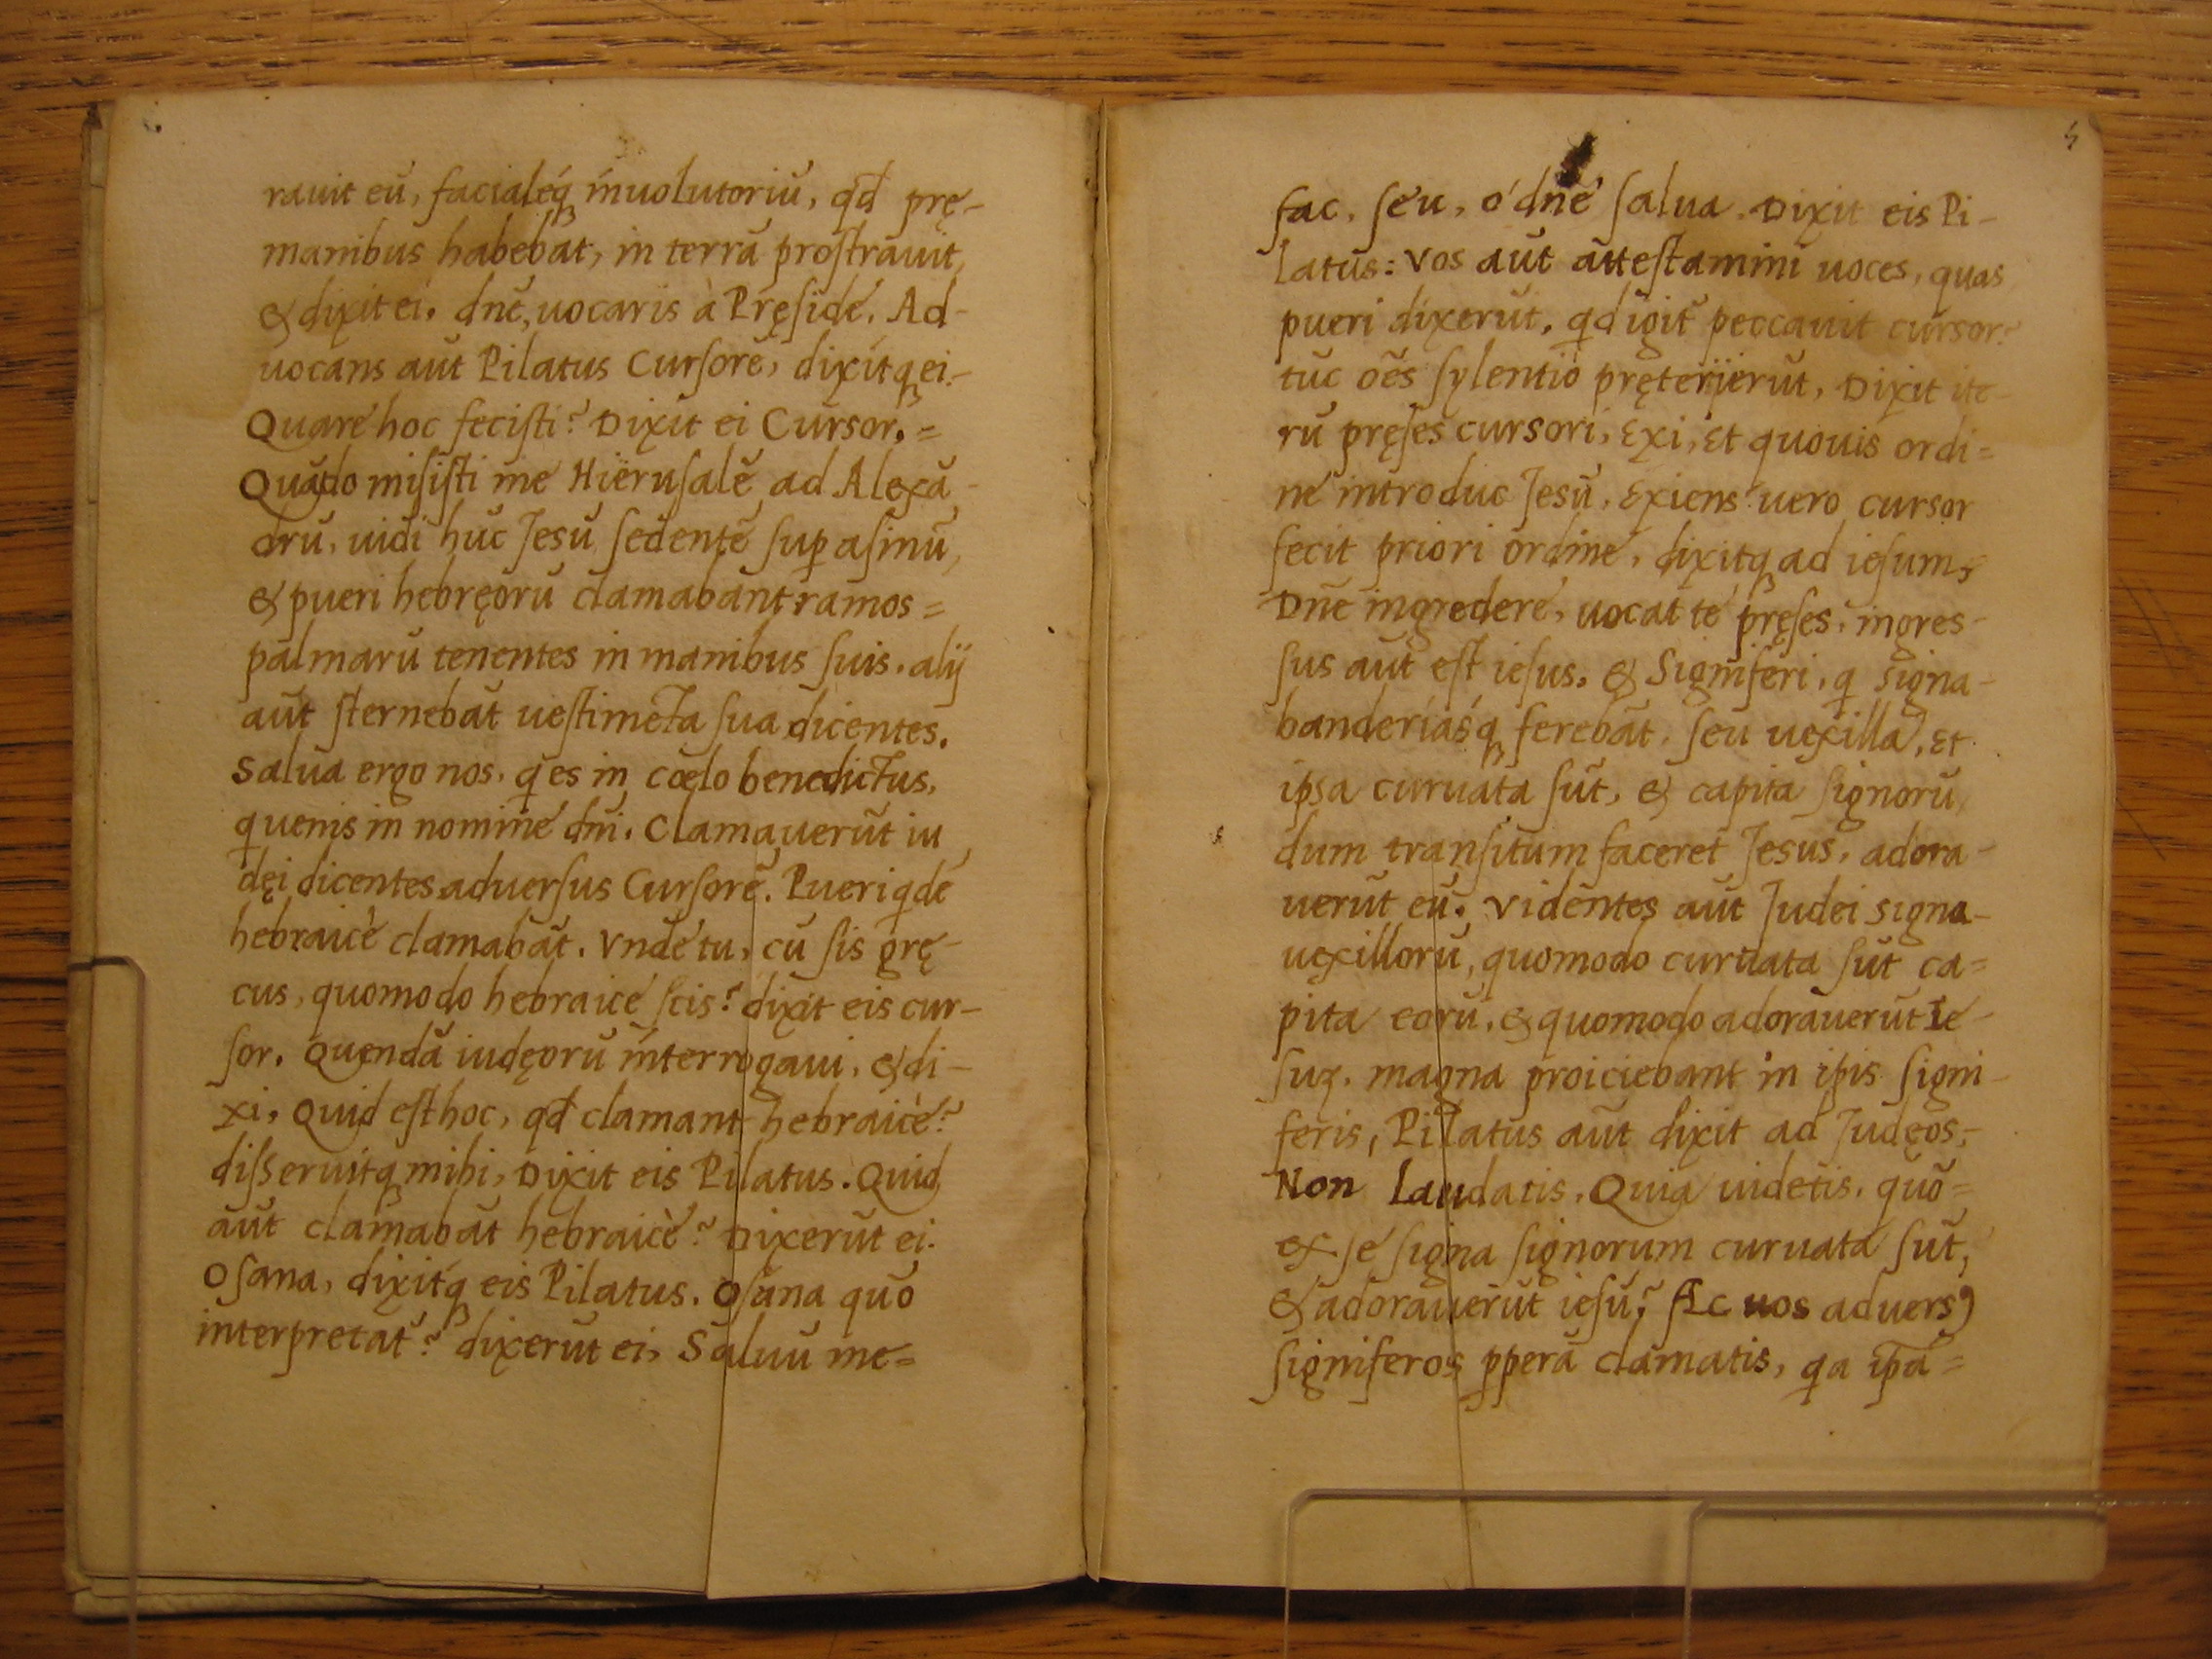 rauit eū, facialéq́ꝫ ínuolutoriū, qd̄ prę-
manibus habebāt, in terrā proſtrauit,
& dixit ei. dn̄e, uocaris à Pręſide. Ad-
uocans aūt Pilatus Curſorē, dixítqꝫ ei.-
Quare hoc feciſti? Dixit ei Cursor.=
Quādo misiſti me Hieruſalē ad Alexā-
drū, uidi hūc Jesū ſedentē ſuꝑ aſinū,
& pueri hebręorū clamabant ramos=
palmarū tenentes in manibus ſuis. alij
aūt ſternebāt ueſtimēta ſua dicentes.
Salua ergo nos, q̄ es in cœlo benedictus,
q̄ uenis in nomine dn̄i. Clamauerūt iu
dęi dicentes aduerſus Curſorē. Pueri qdē
hebraicè clamabāt. Vnde tu, cū ſis grę-
cus, quomodo hebraicè ſcis? dixit eis cur-
ſor. Quendā iudęorū ínterrogaui, & di-
xi, Quid eſt hoc, qd̄ clamant hebraicè?
diſſeruitqꝫ mihi, Dixit eis Pilatus. Quid
aūt clamabāt hebraicè? Dixerūt ei.
Oſana, dixitq́ꝫ eis Pilatus. Oſana quō
interpretat̄? dixerūt ei, Saluū me=
5
fac, ſeu, ó dn̄e ſalua. Dixit eis Pi-
latus: Vos aūt atteſtamini uoces, quas
pueri dixerūt, qd igit̄ peccauit cursor?
tūc oēs ſylentio pręterierūt, Dixit ite-
rū pręſes cursori, Exi, Et quouis ordi=
ne introduc Jesū, Exiens uero cursor
fecit priori ordine, dixitqꝫ ad ieſum,
Dn̄e ingredere, uocat te pręſes, ingres-
sus aūt eſt ieſus. & Signiferi, q̄ signa-
banderiásq́ꝫ ferebāt, ſeu uexilla, Et
ipsa curuata ſūt, & capita ſignorū,
dum tranſitum faceret Jesus, adora-
uerūt eū. Videntes aūt Judei signa-
uexillorū, quomodo curuata ſūt ca=
pita eorū, & quomodo adorauerūt Ie-
ſuꝫ. magna proiciebant in ip̄is ſigni-
feris, Pilatus aūt dixit ad Judęos,-
Non laudatis. Quia uidetis, quō=
ex se ſigna ſignorum curuata ſūt,
& adorauerūt ieſū? Ac uos aduersꝰ
ſigniferos ꝑperā clamatis, qa ip̄a=